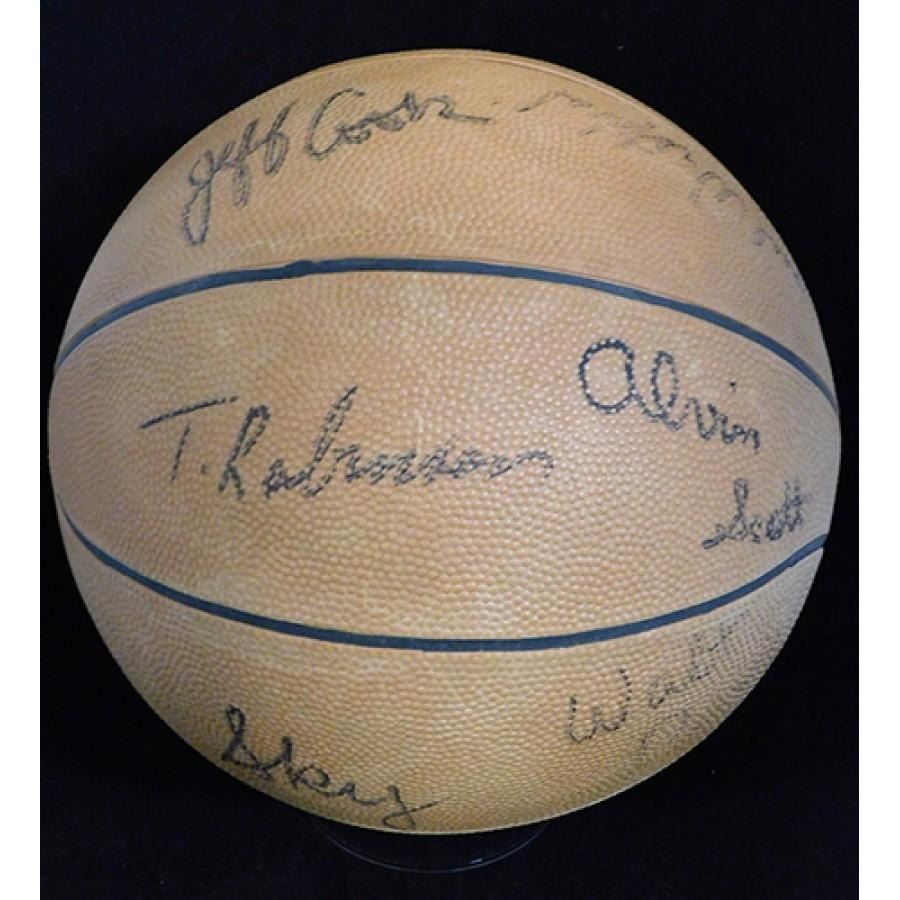 Jeff Cook
T. Robinson
Alvin
Scott
Walt
Skey